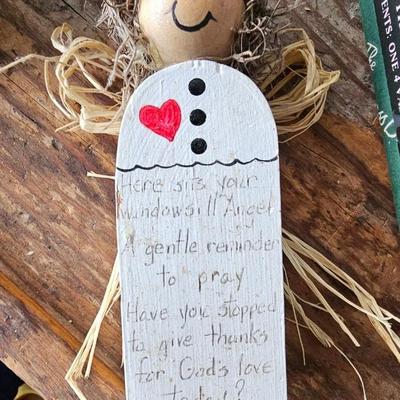 Here sits your
Windowsill Angel
A gentle reminder
to pray
Have you stopped
to give thanks
for God's love
today?
ENTS: ONE 4
The